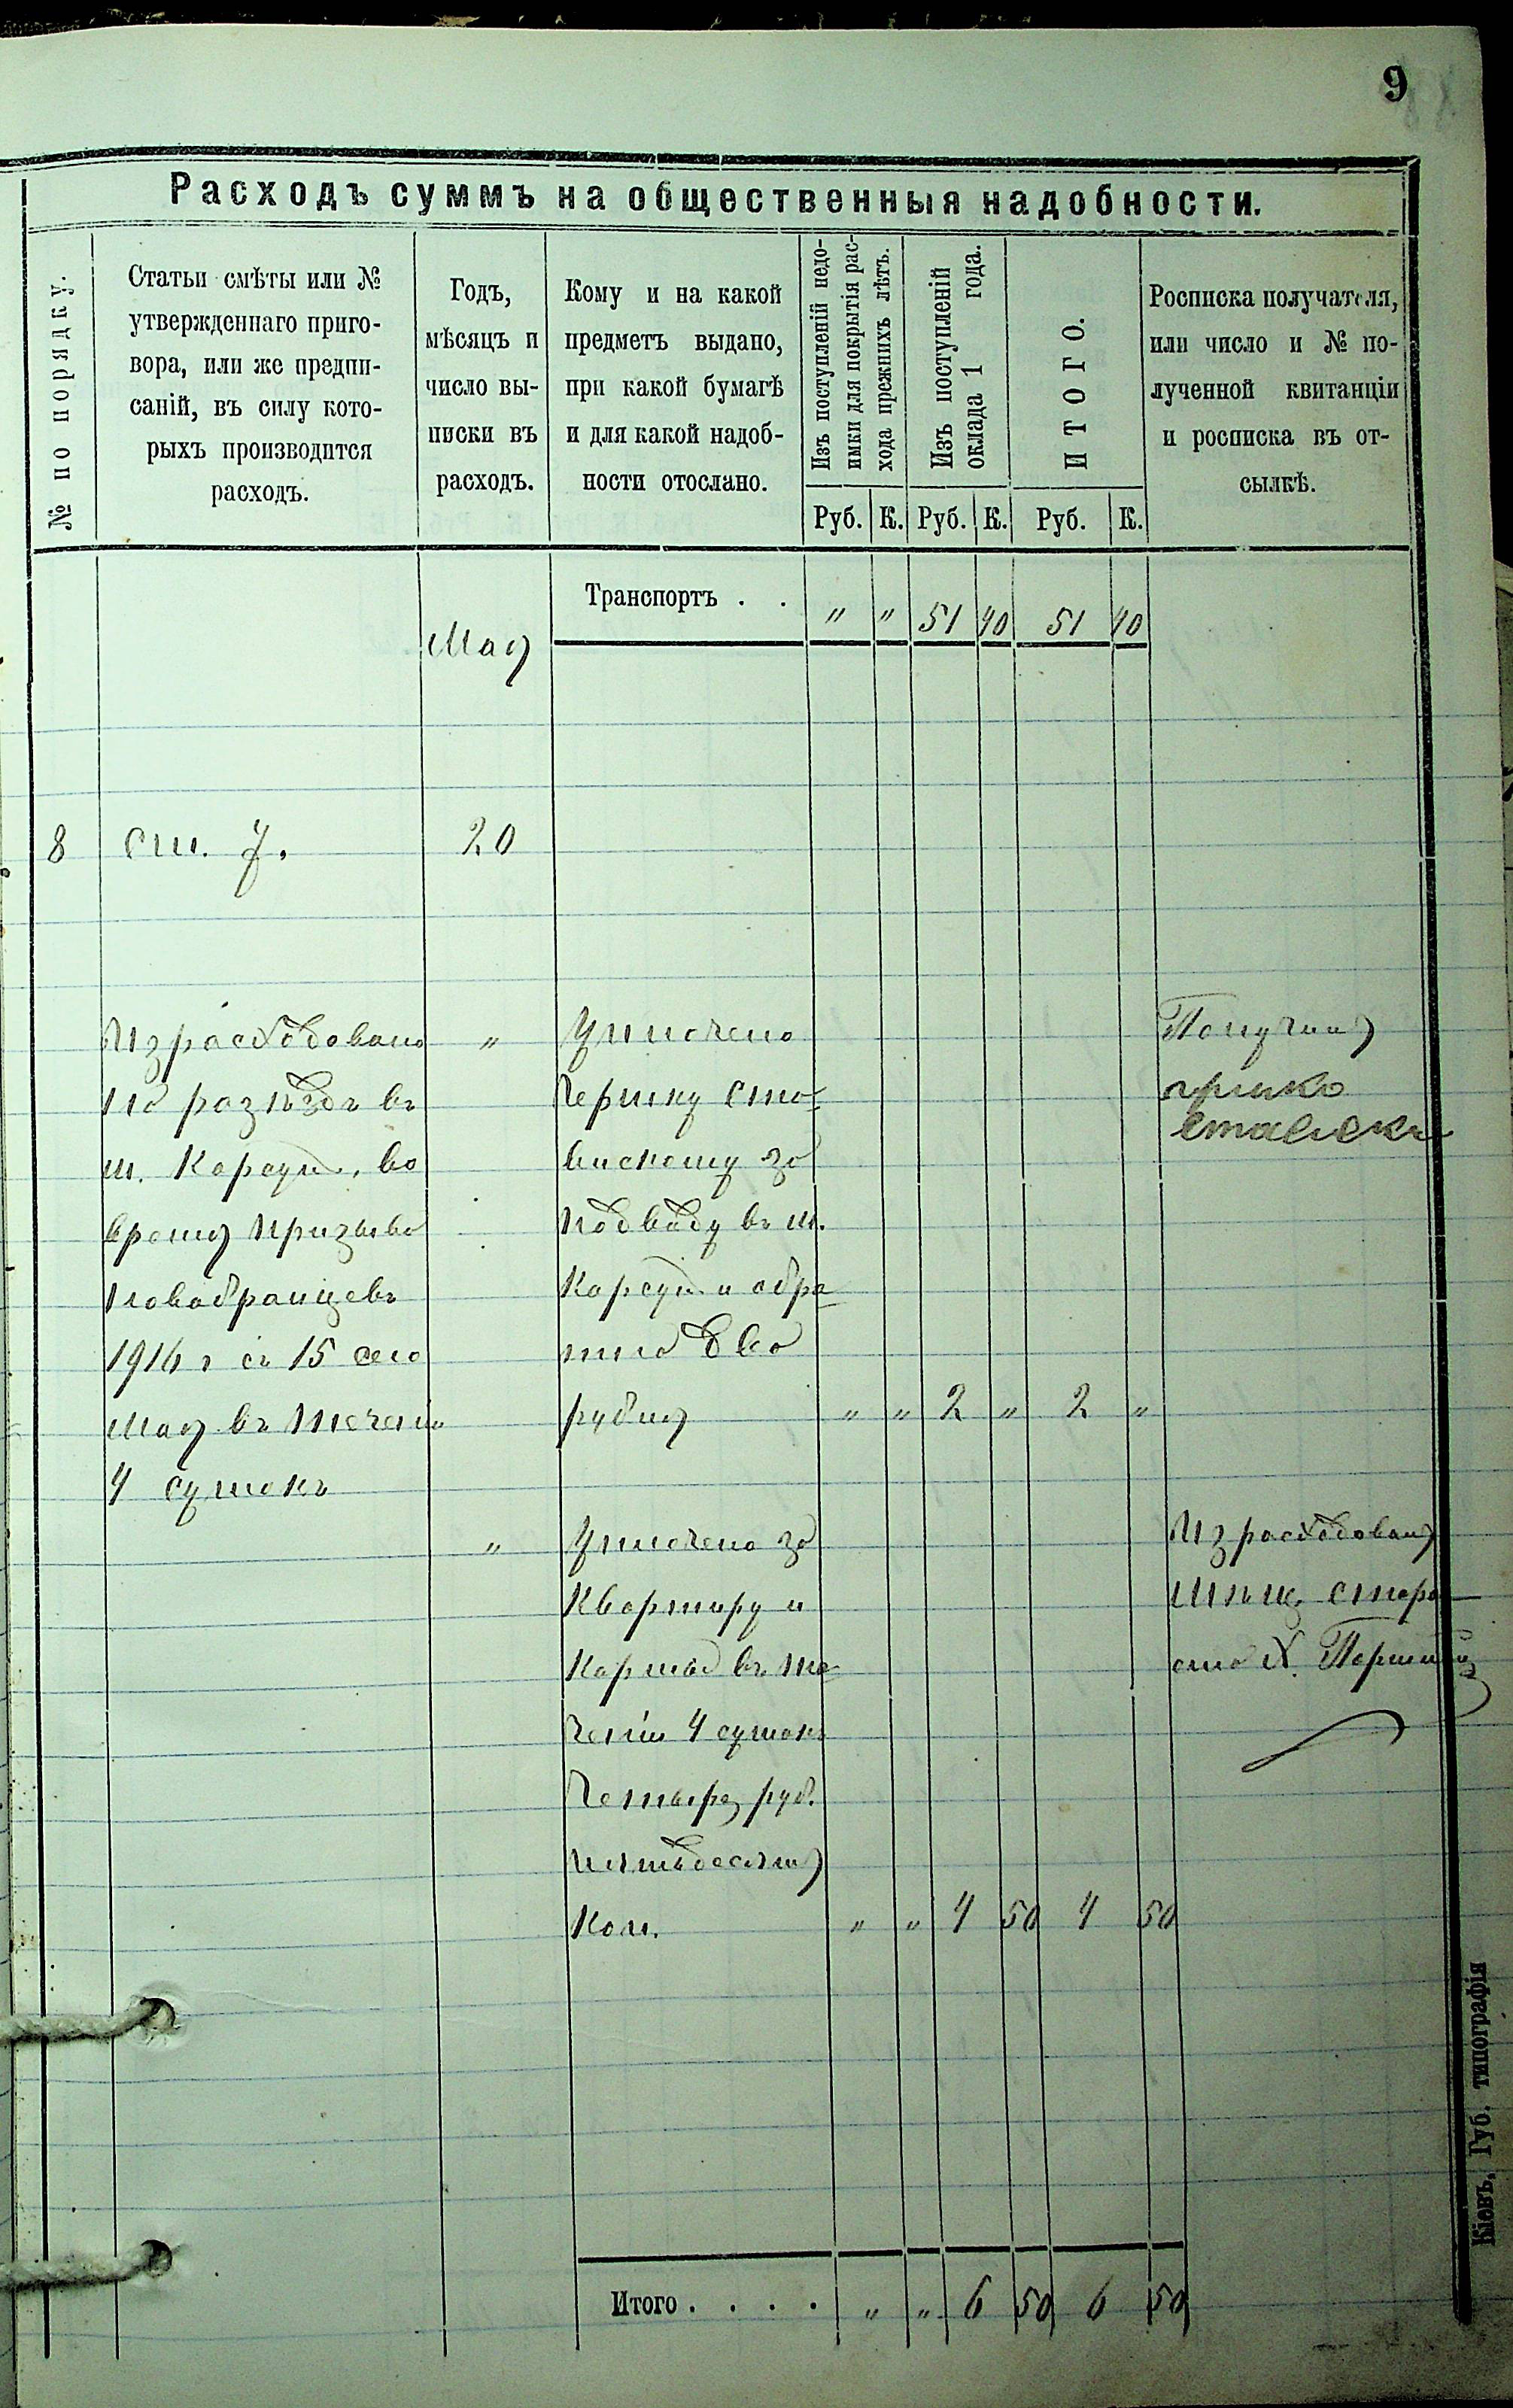 9
Расходъ суммъ на общественныя надобности.
№ по порядку.
Статьи смѣты или №
утвержденнаго приго-
вора, или же предпи-
саній, въ силу кото-
рыхъ производится
расходъ.
Годъ,
мѣсяцъ и
число вы-
писки въ
расходъ.
Кому и на какой
предметъ выдано,
при какой бумагѣ
и для какой надоб-
ности отослано.
Изъ поступленій недо-
имки для покрытія рас-
хода прежнихъ лѣтъ.
Изъ поступленій
оклада 1 года.
ИТОГО.
Росписка получателя,
или число и № по-
лученной квитанціи
и росписка въ от-
сылкѣ.
Руб. К. Руб. К. Руб. К.
Транспортъ . . " " 51 40 51 40
Мая
8 ст. 7. 20
Израсходовано
на разъѣздъ въ
м. Корсунь, во
время призыва
новобранцевъ
1916 г съ 15 сего
Мая въ теченіи
4 сутокъ
"
Уплочено
за
подводу въ м.
Корсунь и обра-
тно два
рубля " " 2 " 2 "
Получилъ
"
Уплочено за
Квартиру и
Кормъ въ те-
ченіи 4 сутокъ
Четыре руб.
пятьдесятъ
Коп. " " 4 50 4 50
Израсходовалъ
Мѣщ. старо-
ста
Итого . . . . " " 6 50 6 50
Кіевъ, Губ. типографія